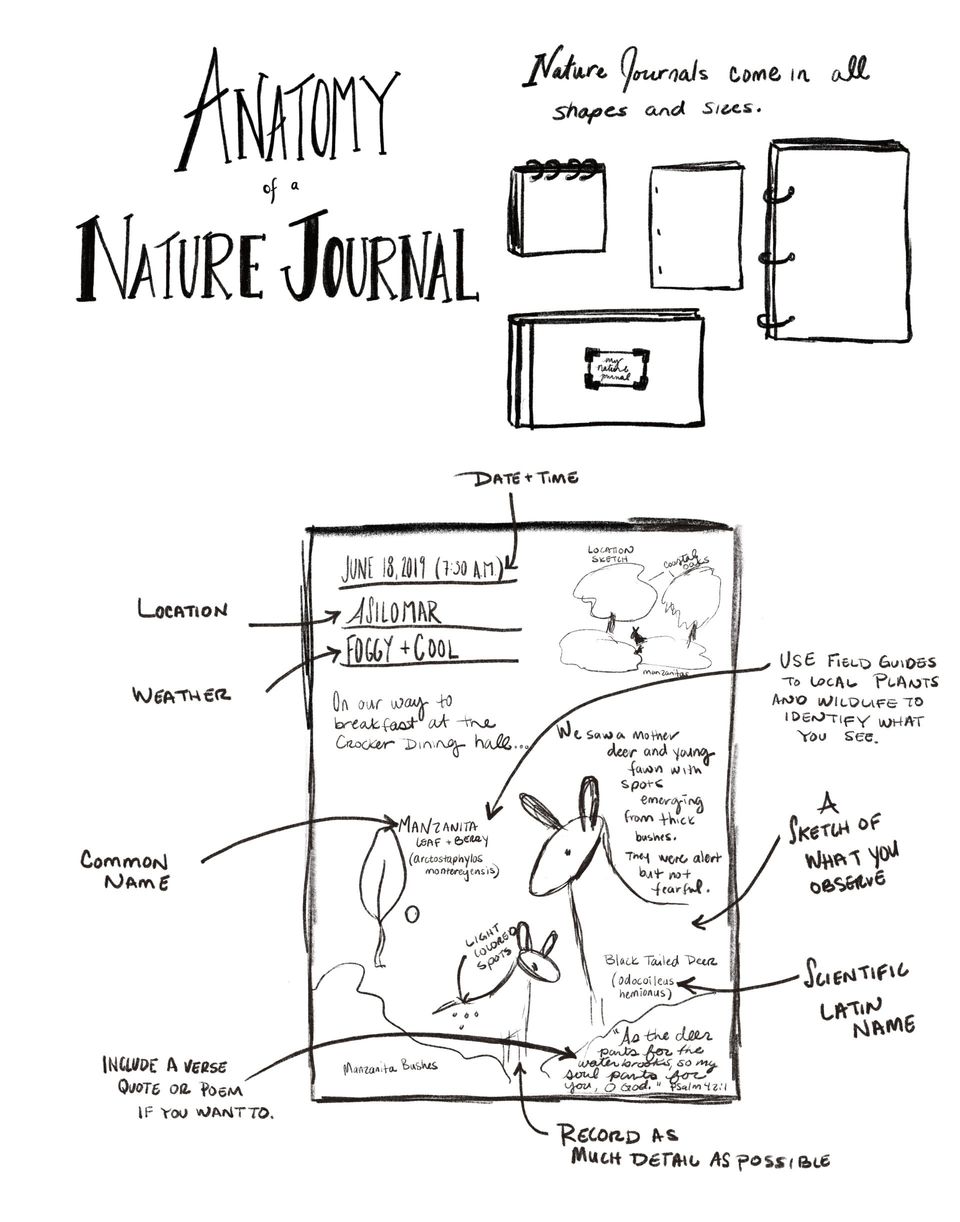 ANATOMY
of a
NATURE JOURNAL
Nature Journals come in all
shapes and sizes.
my
nature
journal
DATE + TIME
JUNE 18, 2019 (7:30 A.M.)
LOCATION
SKETCH
coastal
oaks
LOCATION
ASILOMAR
FOGGY + COOL
WEATHER
manzanitas
USE FIELD GUIDES
TO LOCAL PLANTS
AND WILDLIFE TO
IDENTIFY WHAT
YOU SEE.
On our way to
breakfast at the
Crocker Dining hall...
We saw a mother
deer and young
fawn with
spots
emerging
from thick
bushes.
They were alert
but not
fearful.
MANZANITA
LEAF + BERRY
(arctostaphylos
montereyensis)
COMMON
NAME
A
SKETCH OF
WHAT YOU
OBSERVE
LIGHT
COLORED
SPOTS
Black Tailed Deer
(odocoileus
hemionus)
SCIENTIFIC
LATIN
NAME
"As the deer
pants for the
water brooks, so my
soul pants for
you, O God." Psalm 42:1
Manzanita Bushes
INCLUDE A VERSE
QUOTE OR POEM
IF YOU WANT TO.
RECORD AS
MUCH DETAIL AS POSSIBLE